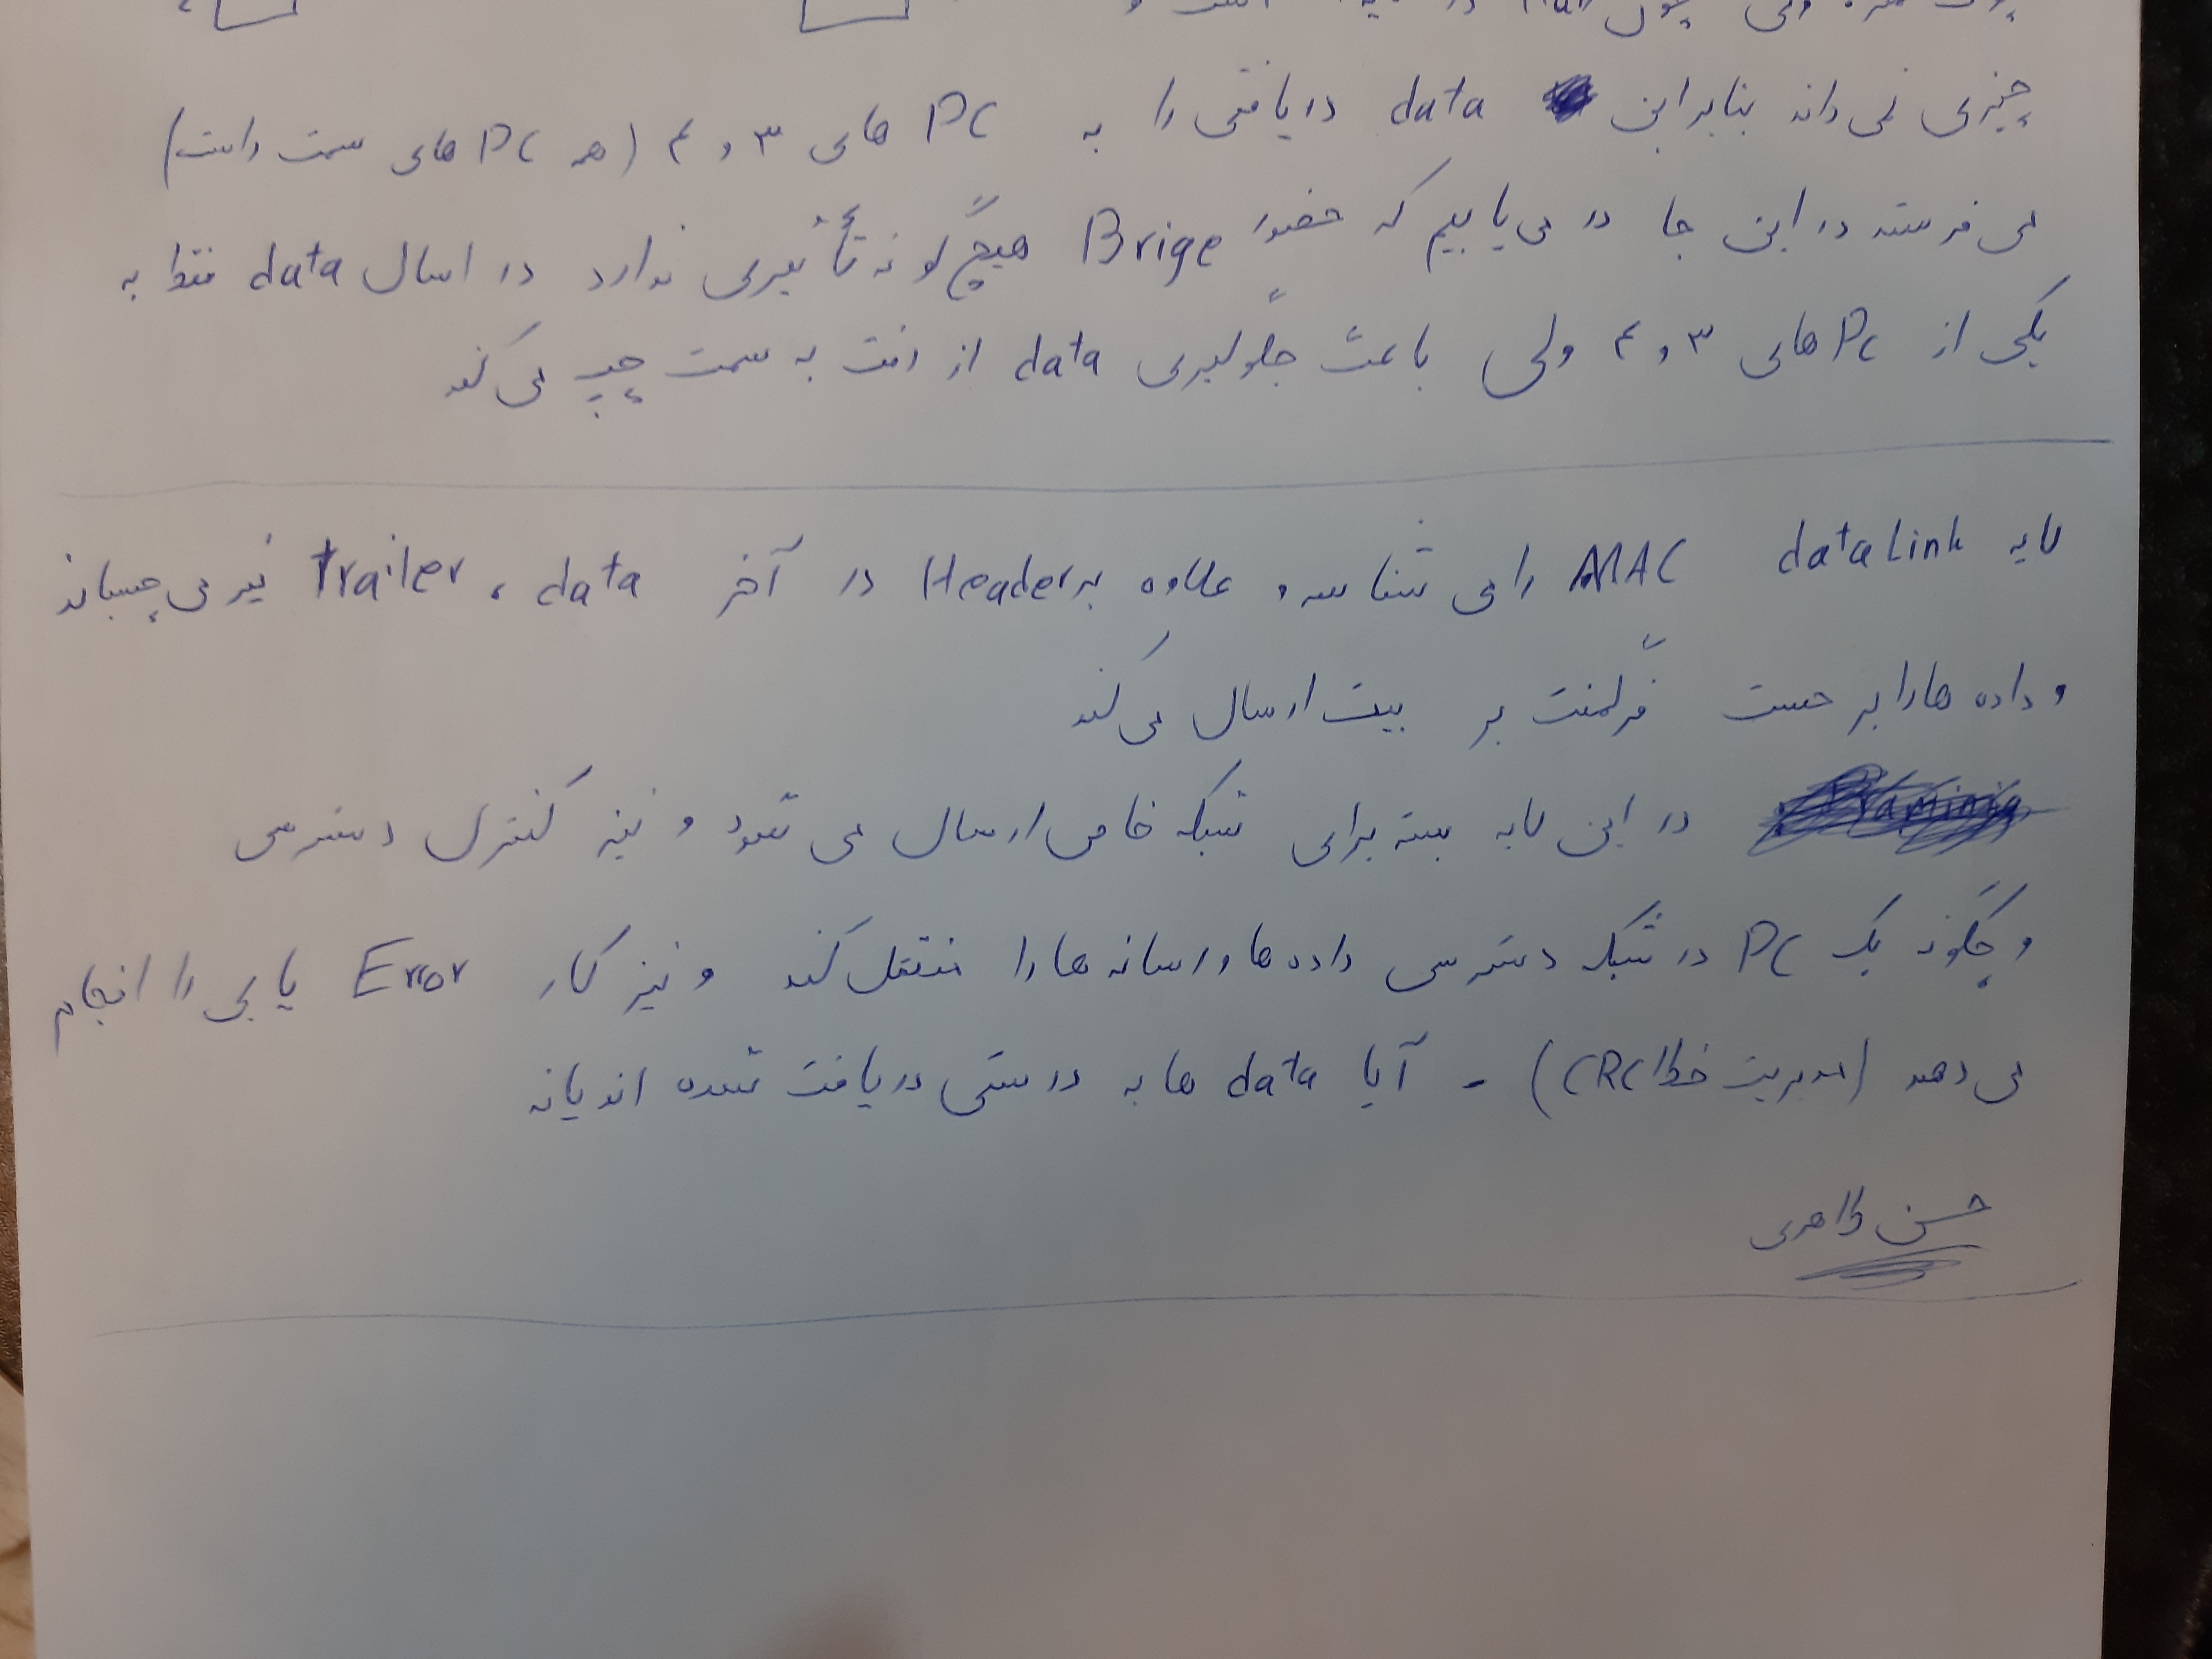 چیزی نمی داند بنابراین data دریافتی را به PC های ۳ و ۴ (همه PC های سمت راست)
می فرستد در این جا در می یابیم که حضور Brige هیچ گونه تأثیری ندارد در ارسال data فقط به
یکی از PC های ۳ و ۴ ولی باعث جلوگیری data از رفت به سمت چپ می کند
لایه dataLink MAC را می شناسد و علاوه بر Header در آخر data، Trailer نیز می چسباند
و داده ها را بر حسب فرگمنت بر بیت ارسال می کند
در این لایه بسته برای شبکه خاص ارسال می شود و نیز کنترل دسترسی
و چگونه یک PC در شبکه دسترسی داده ها و رسانه ها را منتقل کند و نیز کار Error یابی را انجام
می دهد (مدیریت خطا CRC) - آیا data ها به درستی دریافت شده اند یا نه
حسن طاهری